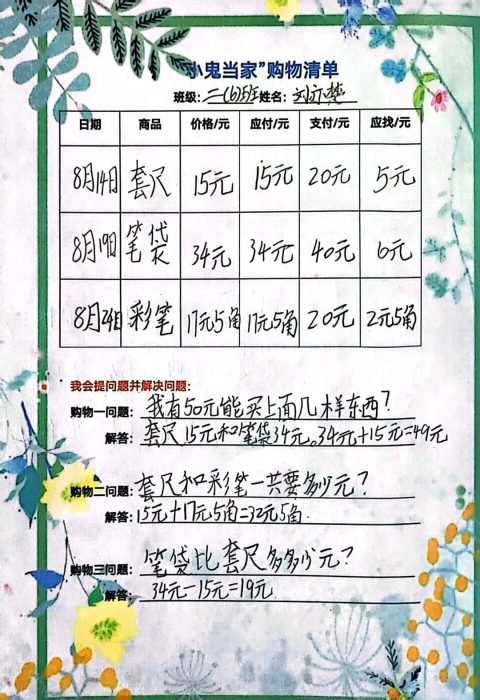 “小鬼当家”购物清单
班级:二(6)班姓名:刘亦楚
日期 商品 价格/元 应付/元 支付/元 应找/元
8月14日 套尺 15元 15元 20元 5元
8月19日 笔袋 34元 34元 40元 6元
8月24日 彩笔 17元5角 17元5角 20元 2元5角
我会提问题并解决问题:
购物一问题: 我有50元能买上面几样东西?
解答: 套尺15元和笔袋34元。34元+15元=49元
购物二问题: 套尺和彩笔一共要多少元?
解答: 15元+17元5角=32元5角
购物三问题: 笔袋比套尺多多少元?
解答: 34元-15元=19元